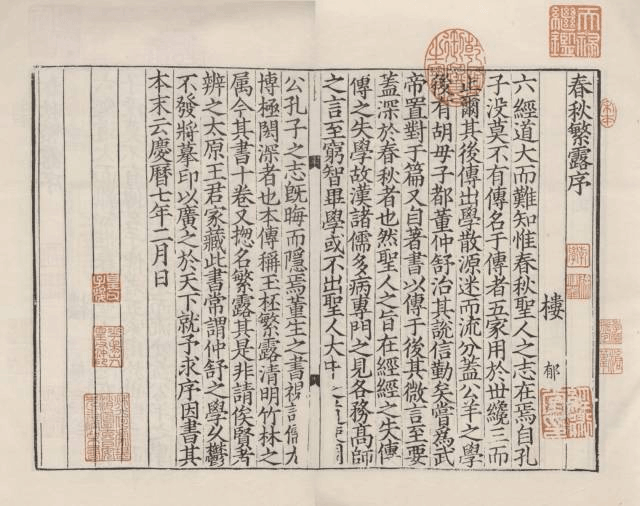 天祿繼鑑
乾隆御覽之寶
宋本
春秋繁露序
樓郁
六經道大而難知惟春秋聖人之志在焉自孔
子没莫不有傳名于傳者五家用於世纔三而
止爾其後傳出學散源迷而流分蓋公羊之學
後有胡母子都董仲舒治其説信勤矣嘗爲武
帝置對于篇又自著書以傳于後其微言至要
蓋深於春秋者也然聖人之旨在經經之失傳
傳之失學故漢諸儒多病專門之見各務髙師
之言至窮智畢學或不出聖人大中之道使周
公孔子之志旣晦而隱焉董生之書視諸儒尤
博極閎深者也本傳稱王杯繁露清明竹林之
属今其書十卷又揔名繁露其是非請俟賢者
辨之太原王君家藏此書常謂仲舒之學久鬱
不發將摹印以廣之於天下就予求序因書其
本末云慶曆七年二月日